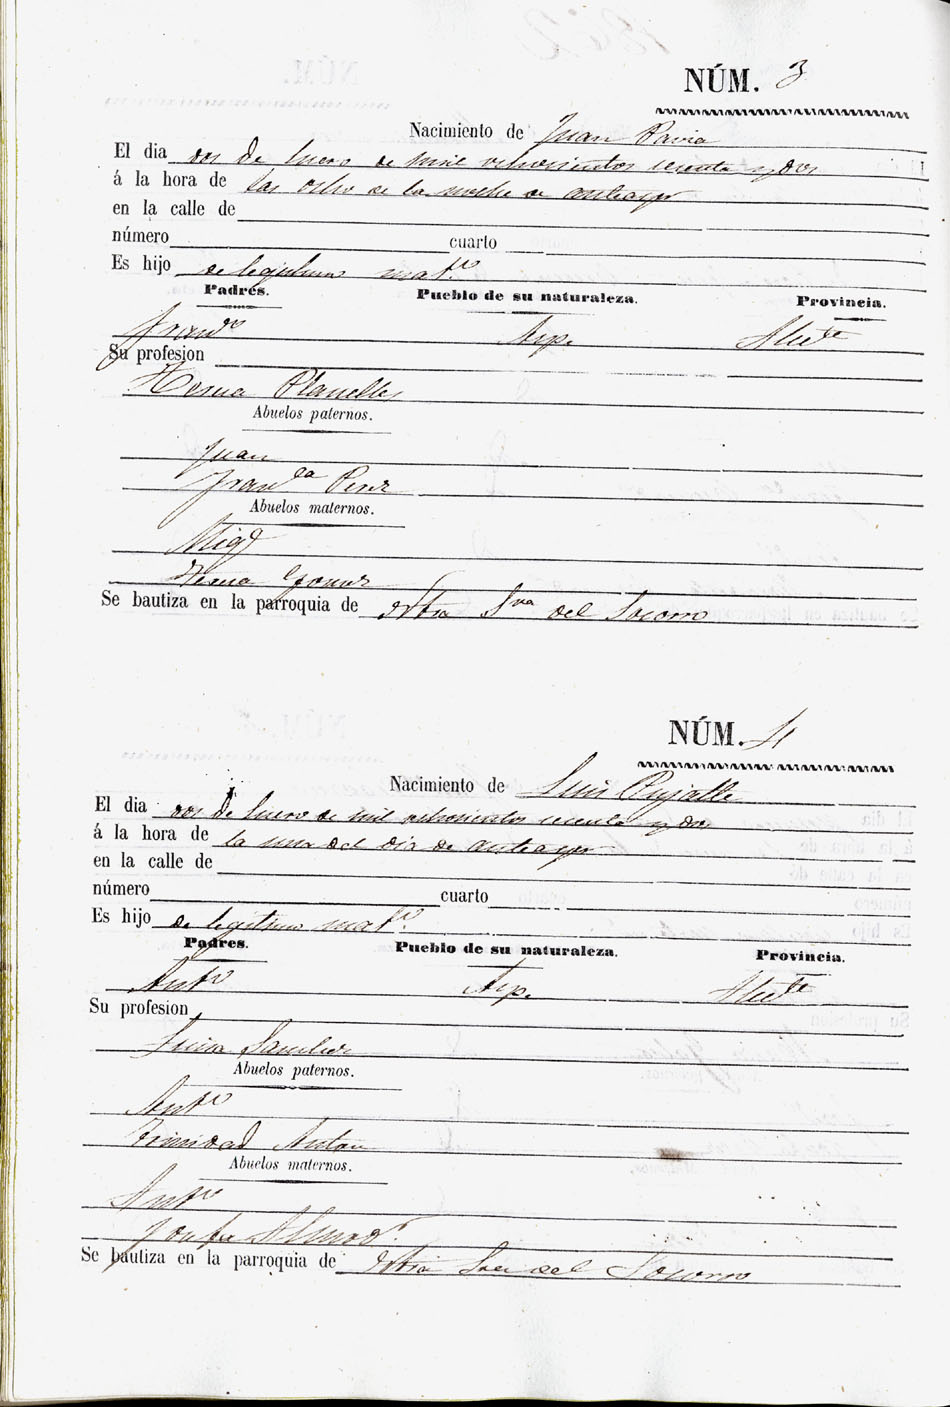 NÚM. 3
Nacimiento de Juan Pavia
El dia dos de Enero de mil ochocientos secenta y dos
á la hora de las ocho de la noche de anteayer
en la calle de
número cuarto
Es hijo de legitimo mat.º
Padres. Pueblo de su naturaleza. Provincia.
Fran.co Asp. Alic.te
Su profesion
Teresa Planelles
Abuelos paternos.
Juan
Fran.ca Perez
Abuelos maternos.
Mig.l
Teresa Gomez
Se bautiza en la parroquia de Ntra Sra del Socorro
NÚM. 4
Nacimiento de Luis Pujalte
El dia dos de Enero de mil ochocientos secenta y dos
á la hora de la una del dia de anteayer
en la calle de
número cuarto
Es hijo de legitimo mat.º
Padres. Pueblo de su naturaleza. Provincia.
Ant.º Asp. Alic.te
Su profesion
Luisa Sanchez
Abuelos paternos.
Ant.º
Trinidad Anton
Abuelos maternos.
Ant.º
Josefa Almod.r
Se bautiza en la parroquia de Ntra Sra del Socorro